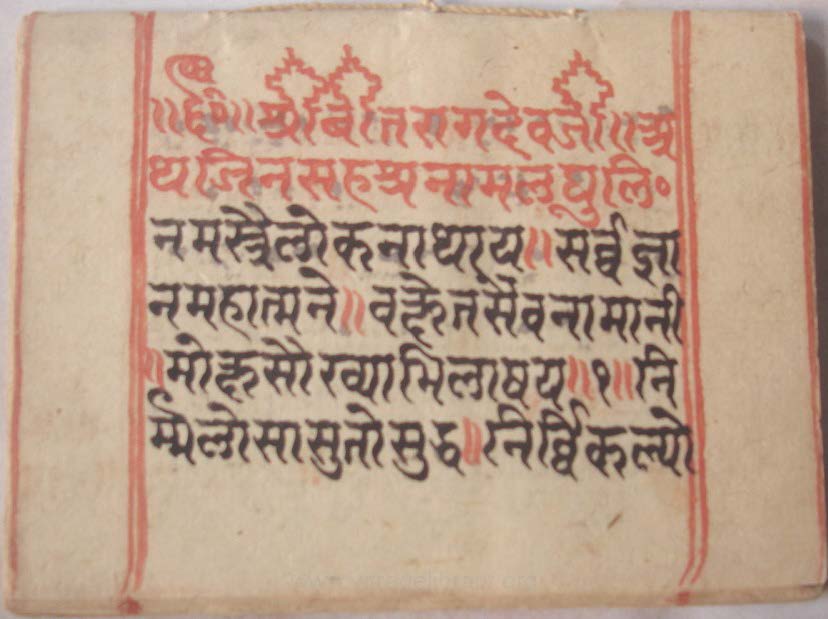 ॥र्द०॥ श्री वीतरागदेवजी॥ अ
थ जिनसहश्रनामलघुलि॰
नमस्त्रैलोकनाथाय॥ सर्व्वज्ञा
नमहात्मने॥ वक्षेतसैवनामानी
॥मोक्षसौख्याभिलाषय॥१॥नि
र्म्मलोसासुतोसुद्ध॥निर्विकल्पो